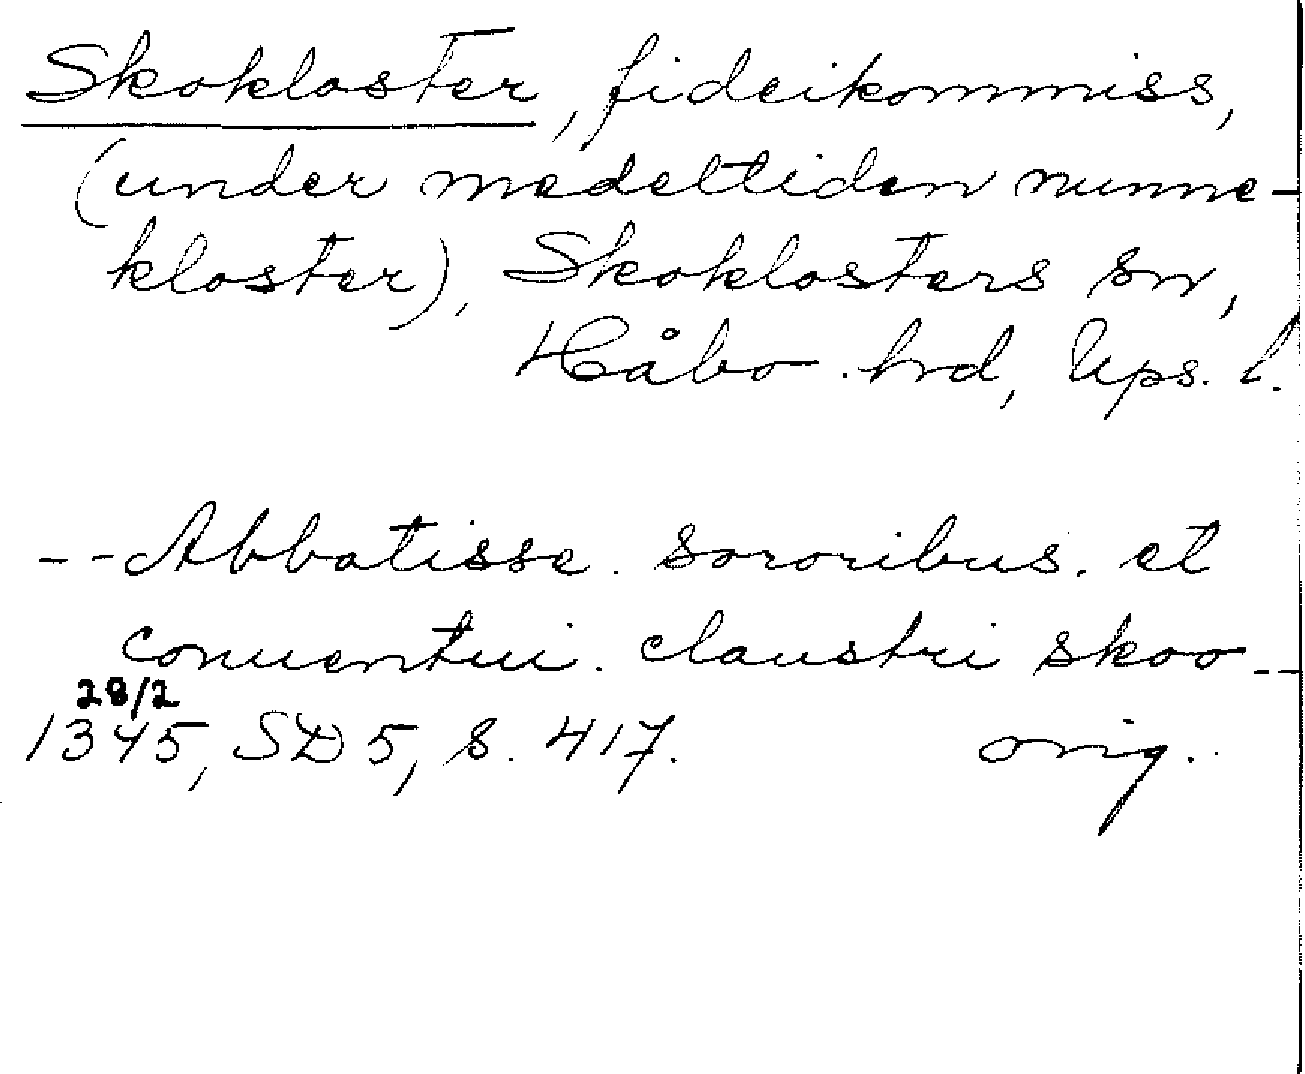 Skokloster, fideikommiss,
(under medeltiden nunne-
kloster), Skoklosters sn,
Håbo hd, Ups. l.
--Abbatisse. sororibus. et
conuentui. claustri skoo--
28/2
1345, SD 5, s. 417. orig.